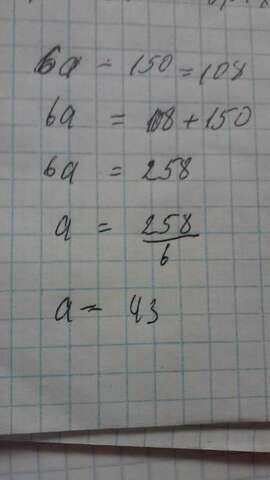 6a - 150 = 108
6a = 108 + 150
6a = 258
a = 258/6
a = 43